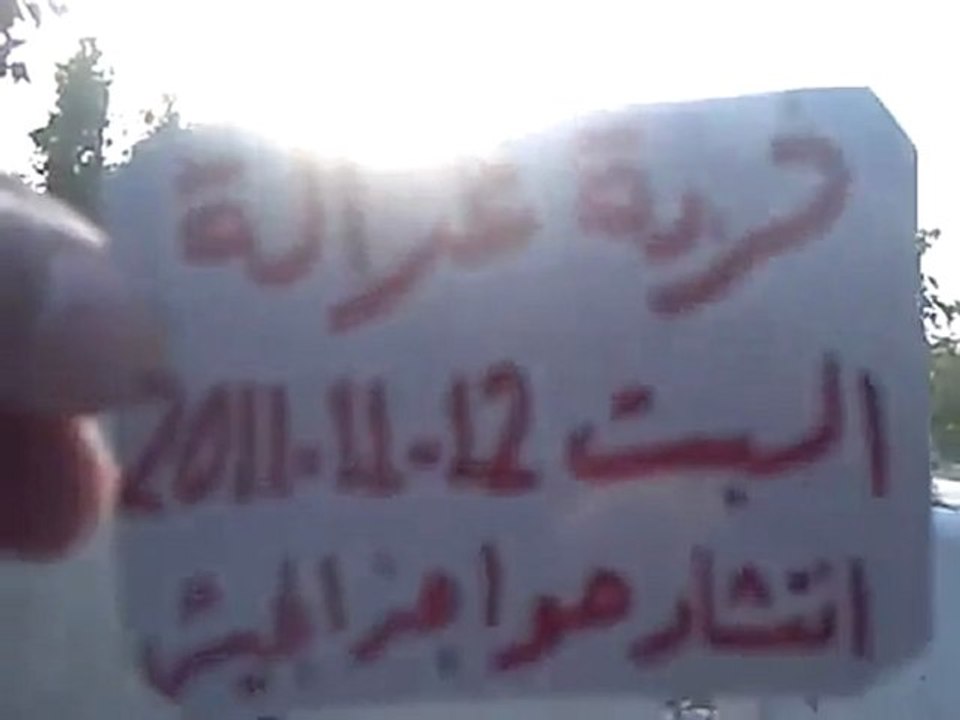 خربة غزالة
السبت 12-11-2011
انتشار حواجز الجيش